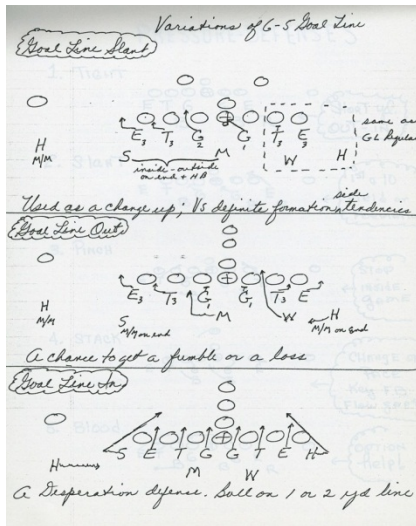 Variations of 6-5 Goal Line
Goal Line Slant
H
M/M
E3 T3 G2 G1 T3 E3
S M W H
inside-outside
on end + HB
same as
GL Regular
side
Used as a change up; Vs definite formation, tendencies
Goal Line Out
H
M/M
E3 T3 G1 G1 T3 E3
S M W H
M/M on end M/M on end
A chance to get a fumble or a loss
Goal Line In
H S E T G G T E H
M W
A Desperation defense. Ball on 1 or 2 yd line